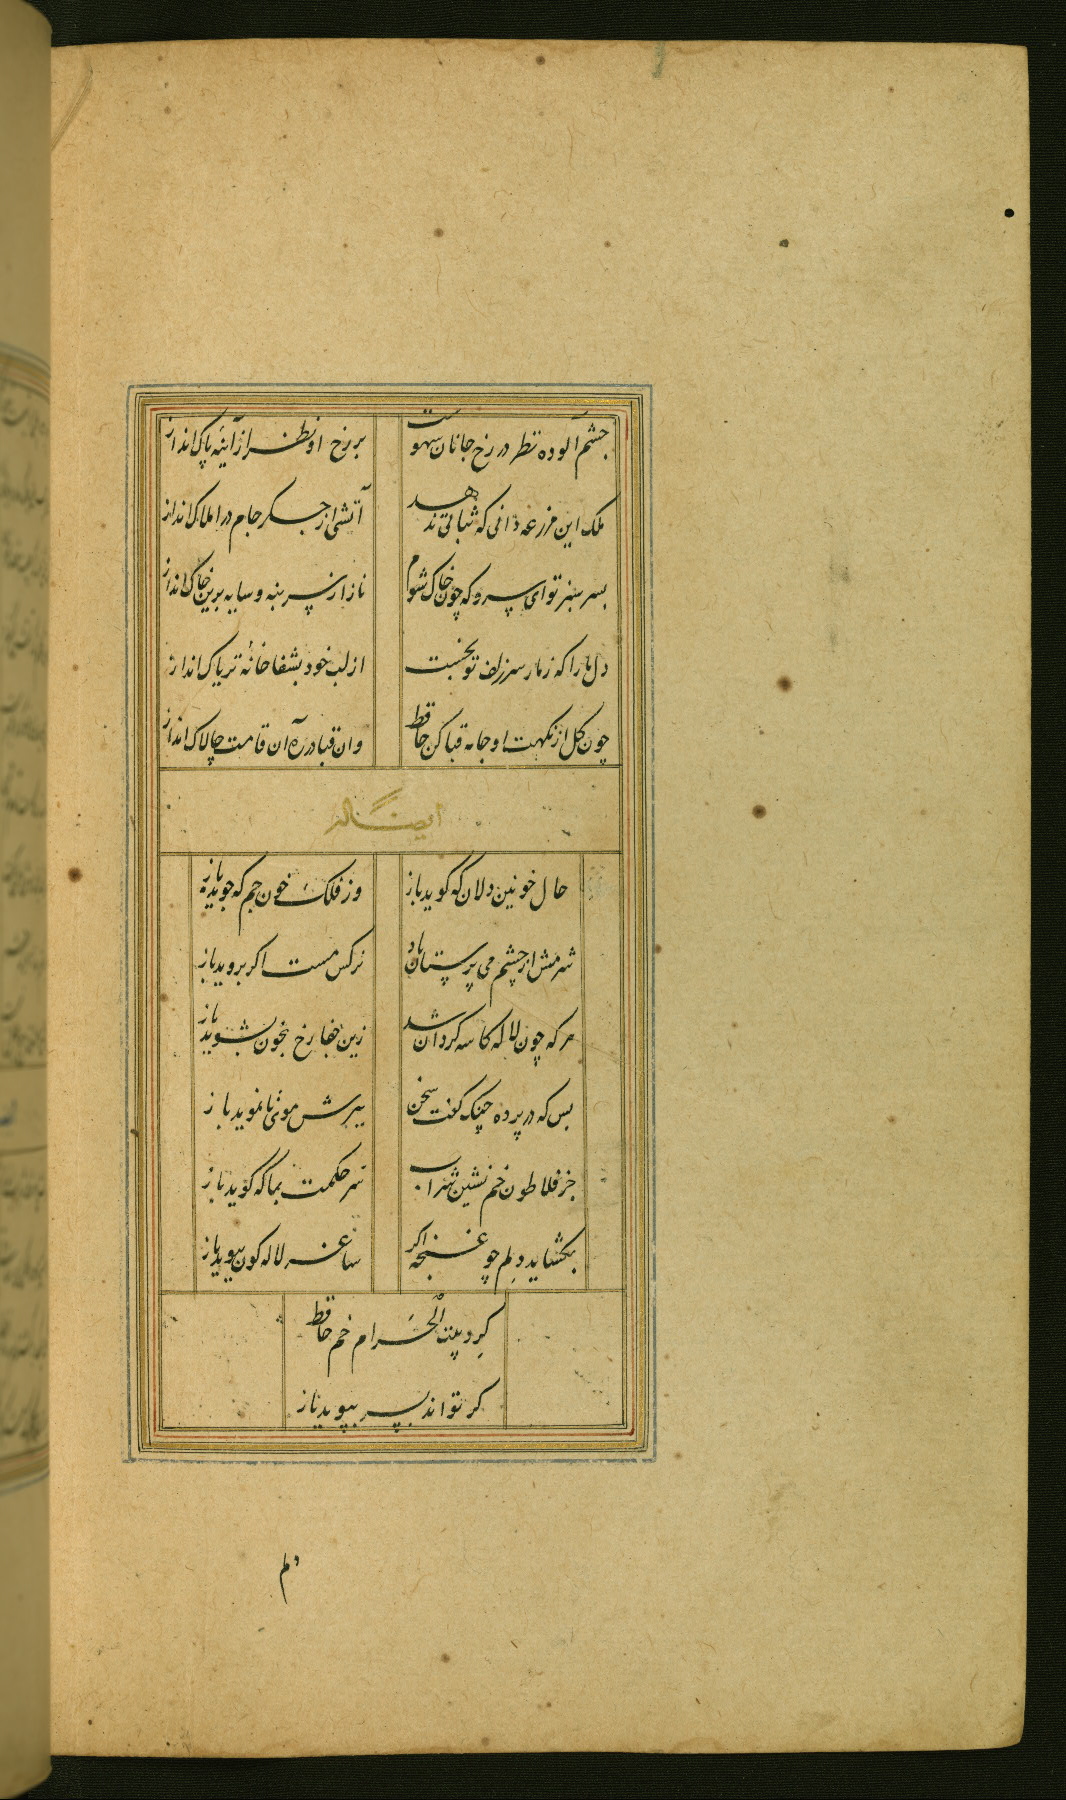 چشم آلوده نظر در رخ جانان سهوست بر رخ او نظر از آینه پاک انداز
ملک این مزرعه دانی که ثباتی ندهد آتشی از جگر جام در املاک انداز
بسر سبز تو ای سرو که چون خاک شوم ناز از سر بنه و سایه برین خاک انداز
دل ما را که ز مار سر زلف تو بخست از لب خود بشفاخانهٔ تریاک انداز
چون گل از نکهت او جامه قبا کن حافظ وان قبا در ره آن قامت چالاک انداز
ایضاً له
حال خونین دلان که گوید باز وز فلک خون جم که جوید باز
شرمش از چشم می پرستان باد نرگس مست اگر بروید باز
هر که چون لاله کاسه گردان شد زین جفا رخ بخون بشوید باز
بس که در پرده چنگ گفت سخن ببرش موی تا نموید باز
جز فلاطون خم نشین شراب سر حکمت بما که گوید باز
بگشاید دلم چو غنچه اگر ساغر لاله گون ببوید باز
گرد بیت الحرام خم حافظ
گر تواند بسر بپوید باز
دلم